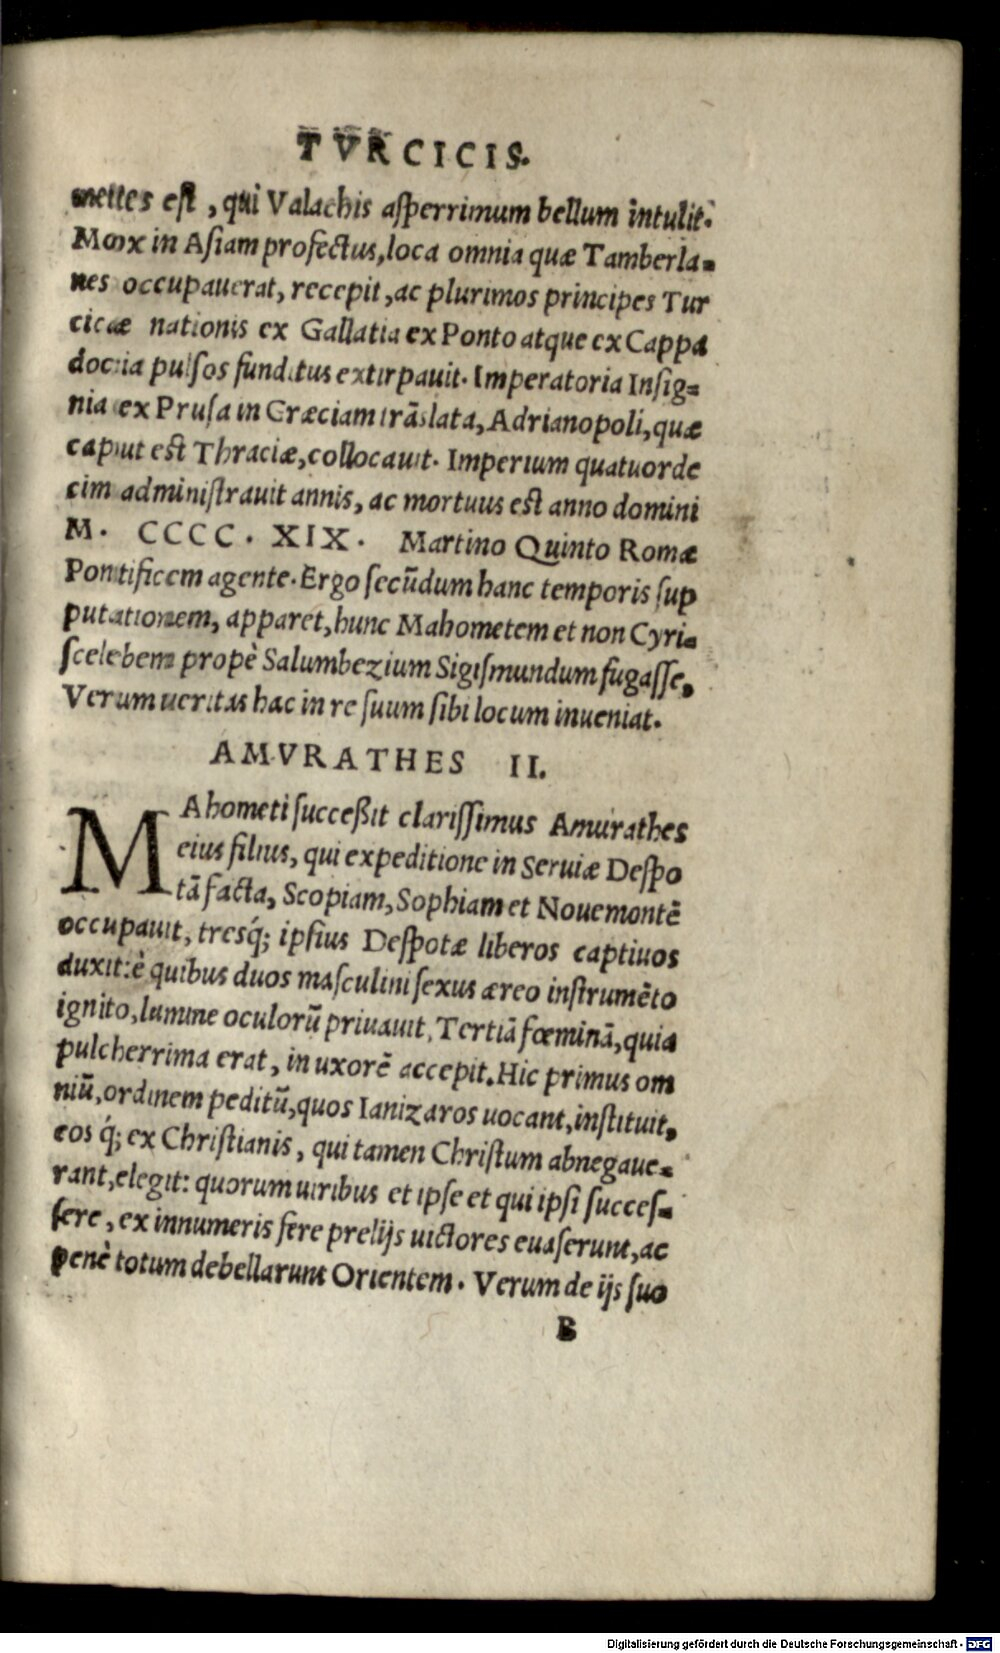 TVRCICIS.
mettes est, qui Valachis asperrimum bellum intulit.
Mox in Asiam profectus, loca omnia quæ Tamberla-
nes occupauerat, recepit, ac plurimos principes Tur
cicæ nationis ex Gallatia ex Ponto atque ex Cappa
docia pulsos funditus extirpauit. Imperatoria Insig-
nia ex Prusa in Græciam trãslata, Adrianopoli, quæ
caput est Thraciæ, collocauit. Imperium quatuorde
cim administrauit annis, ac mortuus est anno domini
M. CCCC. XIX. Martino Quinto Romæ
Pontificem agente. Ergo secũdum hanc temporis sup
putationem, apparet, hunc Mahometem et non Cyri-
scelebem propè Salumbezium Sigismundum fugasse,
Verum ueritas hac in re suum sibi locum inueniat.
AMVRATHES II.
MAhometi successit clarissimus Amurathes
eius filius, qui expeditione in Seruiæ Despo
tã facta, Scopiam, Sophiam et Nouemontẽ
occupauit, tresq́; ipsius Despotæ liberos captiuos
duxit: è quibus duos masculini sexus æreo instrumẽto
ignito, lumine oculorũ priuauit, Tertiã fœminã, quia
pulcherrima erat, in uxorẽ accepit. Hic primus om
niũ, ordinem peditũ, quos Ianizaros uocant, instituit,
eos q́; ex Christianis, qui tamen Christum abnegaue-
rant, elegit: quorum uiribus et ipse et qui ipsi succes-
sere, ex innumeris fere prelijs uictores euaserunt, ac
penè totum debellarunt Orientem. Verum de ijs suo
B
Digitalisierung gefördert durch die Deutsche Forschungsgemeinschaft - DFG